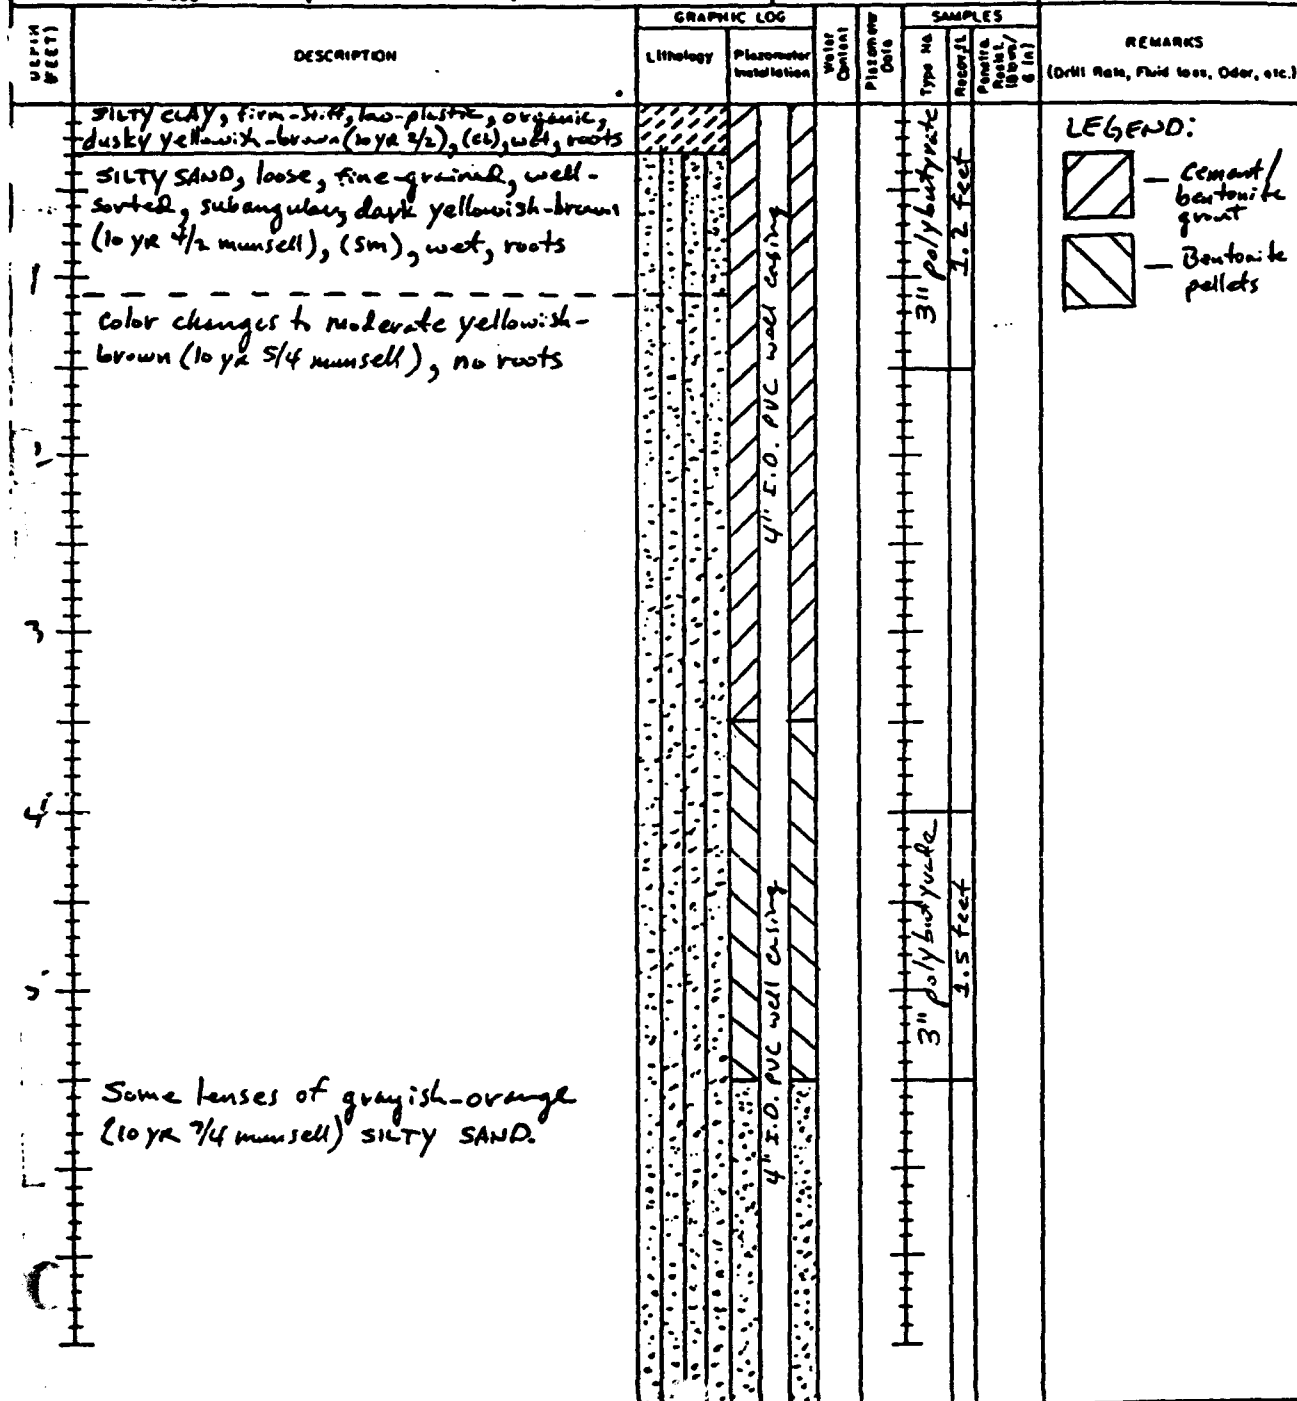 DEPTH (FEET)
DESCRIPTION
GRAPHIC LOG
Lithology
Piezometer Installation
Water Content
Piezometer Data
SAMPLES
Type No
Recov,ft
Penetra Resist (Blows/ 6 in)
REMARKS
(Drill Rate, Fluid loss, Odor, etc.)
SILTY CLAY, firm-stiff, low-plastic, organic,
dusky yellowish-brown (10 YR 2/2), (CL), wet, roots
SILTY SAND, loose, fine-grained, well-
sorted, subangular, dark yellowish-brown
(10 YR 4/2 munsell), (SM), wet, roots
color changes to moderate yellowish-
brown (10 YR 5/4 munsell), no roots
Some lenses of grayish-orange
(10 YR 7/4 munsell) SILTY SAND.
1
2
3
4'
5'
4" I.D. PVC well casing
4" I.D. PVC well casing
3" polybutyrate
1.2 feet
3" polybutyrate
1.5 feet
LEGEND:
— Cement/
bentonite
grout
— Bentonite
pellets